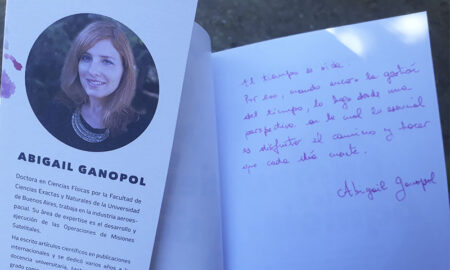 ABIGAIL GANOPOL
Doctora en Ciencias Físicas por la Facultad de
Ciencias Exactas y Naturales de la Universidad
de Buenos Aires, trabaja en la industria aeroes-
pacial. Su área de expertise es el desarrollo y
ejecución de las Operaciones de Misiones
Satelitales.
Ha escrito artículos científicos en publicaciones
internacionales y se dedicó varios años a la
docencia universitaria,
El tiempo es vida.
Por eso, cuando encaro la gestión
del tiempo, lo hago desde una
perspectiva en la cual lo esencial
es disfrutar el camino y hacer
que cada día cuente.
Abigail Ganopol